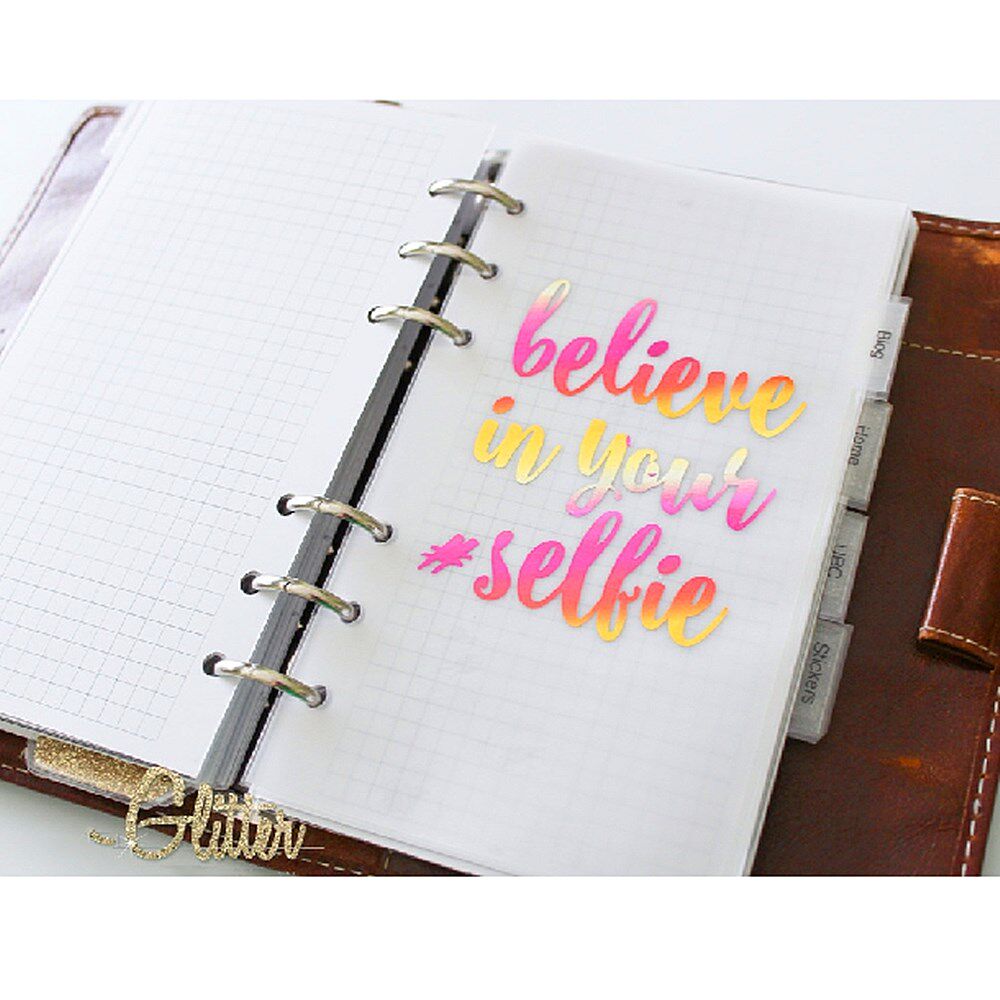 believe
in your
#selfie
Blog
Home
UBC
Stickers
Glitter